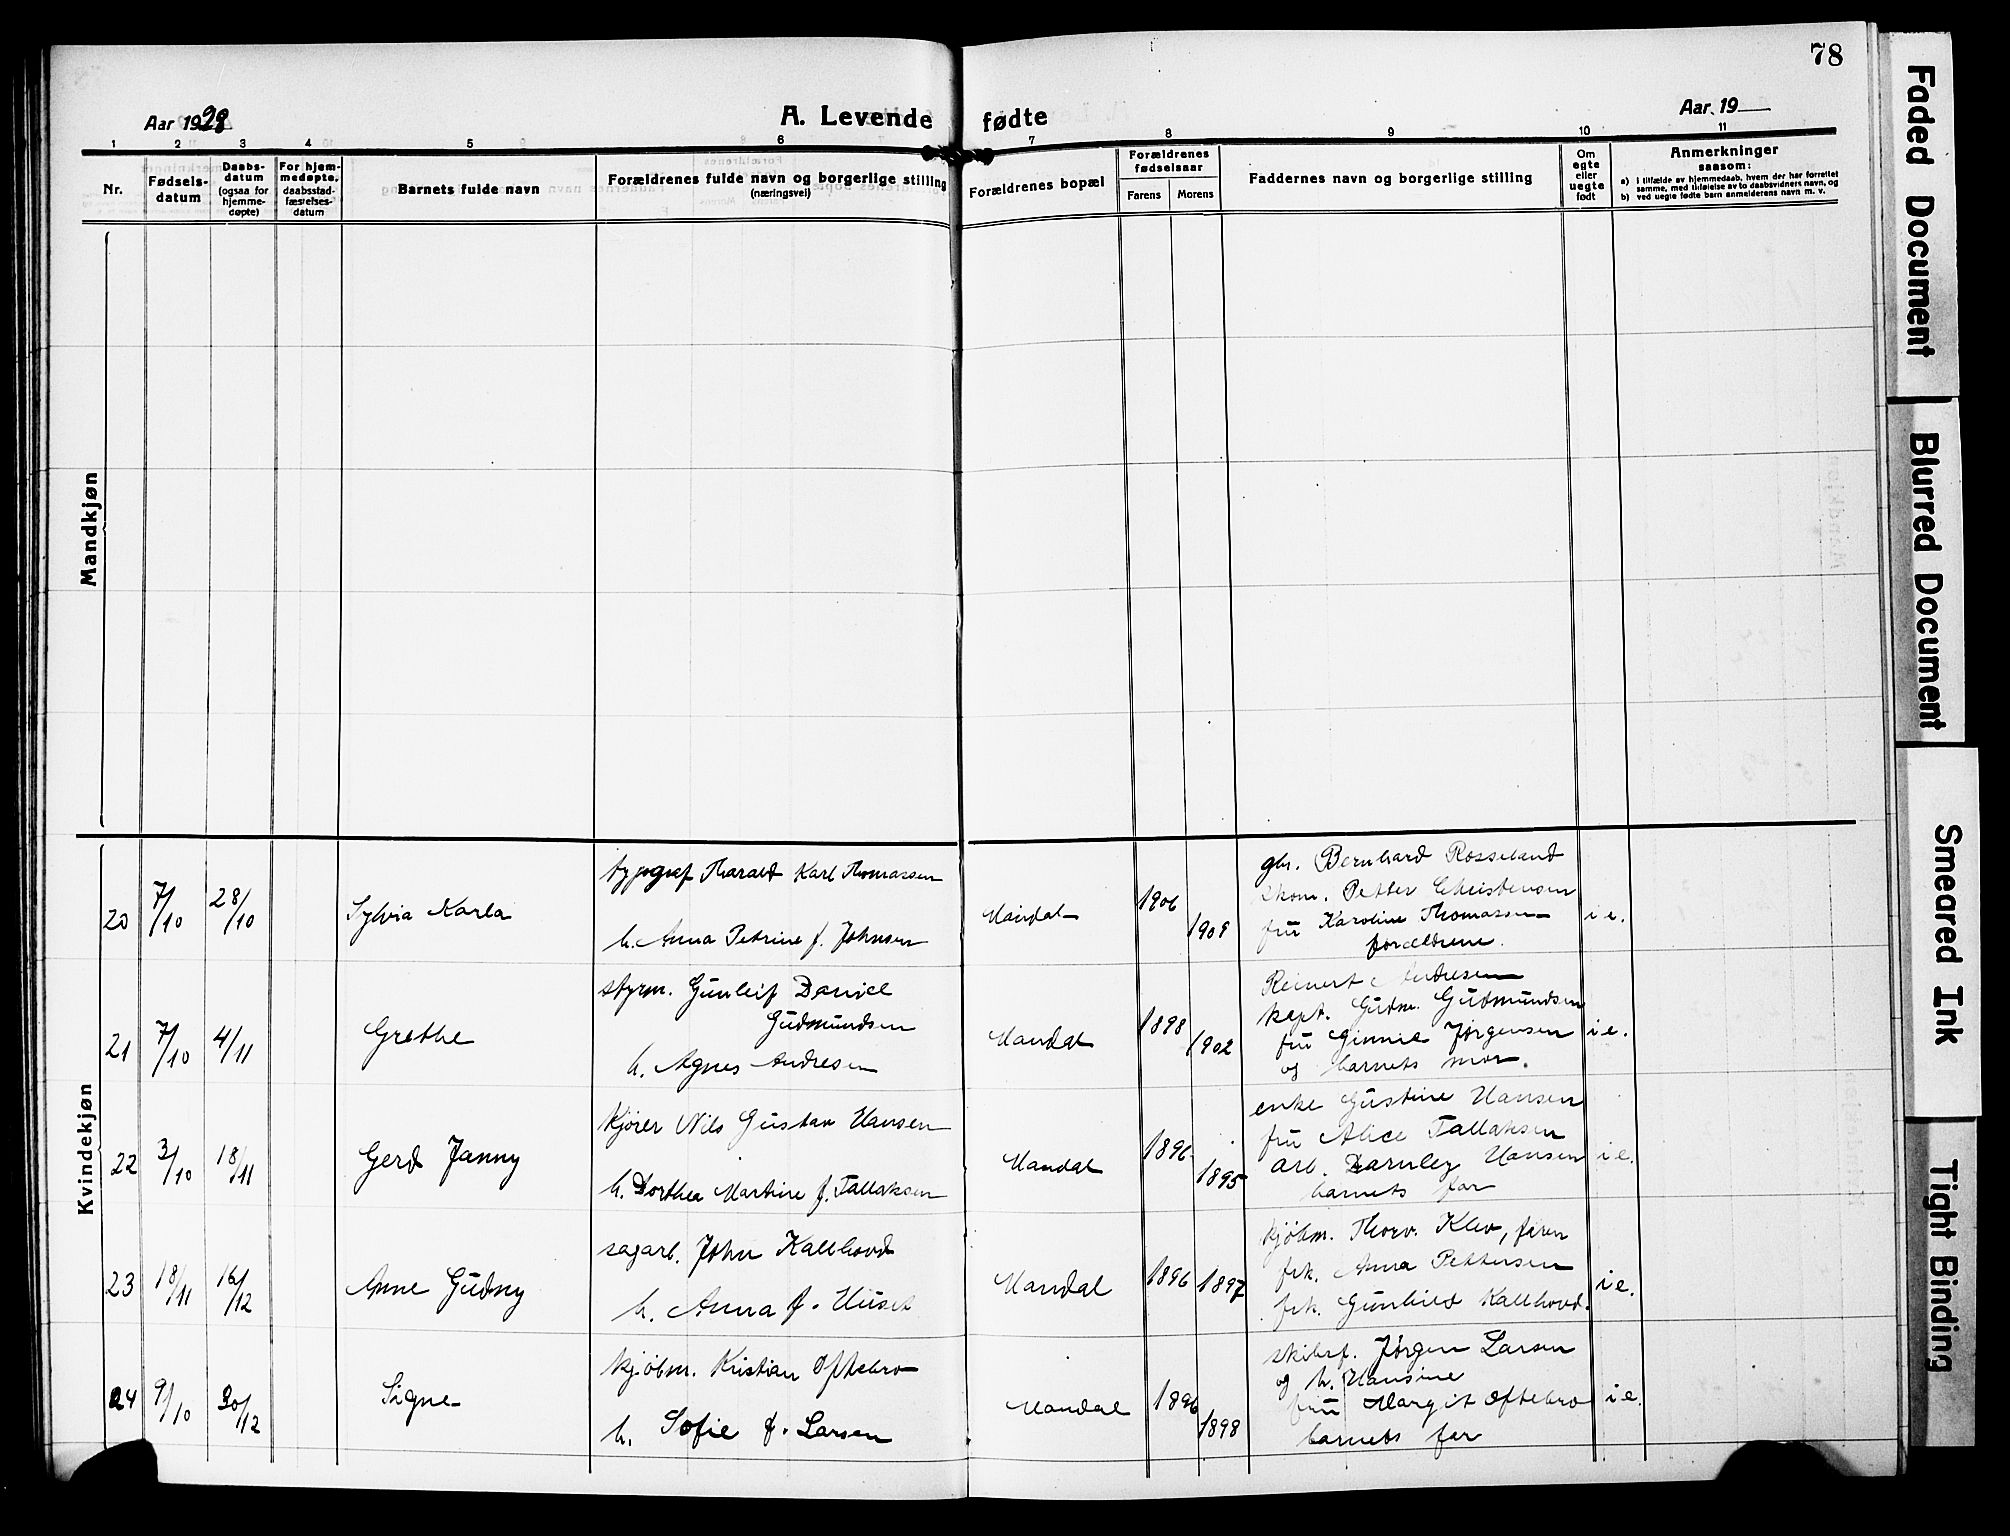 78
Aar 1928
A. Levende fødte
Aar 19
1 2 3 4 5 6 7 8 9 10 11
Nr.
Fødsels-
datum
Daabs-
datum
(ogsaa for
hjemme-
døpte)
For hjem-
medøpte,
daabsstad-
fæstelses-
datum
Barnets fulde navn
Forældrenes fulde navn og borgerlige stilling
(næringsvei)
Forældrenes bopæl
Forældrenes
fødselsaar
Farens
Morens
Faddernes navn og borgerlige stilling
Om
egte
eller
uegte
født
Anmerkninger
saasom:
a) i tilfælde av hjemmedaab, hvem der har forrettet
samme, med tilføielse av to daabsvidners navn, og
b) ved uegte fødte barn anmelderens navn m. v.
Mandkjøn
Kvindekjøn
20 7/10 28/10
Sylvia Karla
typograf Harald Karl Thomassen
h. Anna Petrine f. Johnsen
Mandal
1906 1909
gbr. Bernhard Rosseland
Petter Christensen
fru Karoline Thomassen
forældrene.
i e.
21 7/10 4/11
Grethe
styrm. Gunleif Daniel
Gudmundsen
h. Agnes Andresen
Mandal
1898 1902
Reinert Andresen
kapt. Gudm. Gudmundsen
fru Ginnie Jørgensen
og barnets mor.
i e.
22 3/10 18/11
Gerd Janny
kjører Nils Gustav Hansen
h. Dorthea Martine f. Tallaksen
Mandal
1896 1895
enke Gustine Hansen
fru Alice Tallaksen
arb. Darnley Hansen
barnets far
i e.
23 18/11 16/12
Anne Gudny
sagarb. John Kallhovd
h. Anna f. Huset
Mandal
1896 1897
kjøbm. Thorv. Klev,
frk. Anna Pettersen
frk. Gunhild Kallhovd.
i e.
24 9/10 30/12
Signe
kjøbm. Kristian Oftebro
h. Sofie f. Larsen
Mandal
1896 1898
skibsf. Jørgen Larsen
og h. Hansine
fru Margit Oftebro
barnets far
i e.
Faded Document
Blurred Document
Smeared Ink
Tight Binding